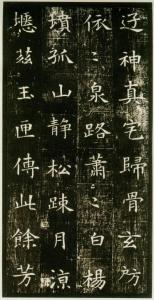 迎神真宅歸骨玄房
依〻泉路蕭〻白楊
墳孤山静松踈月涼
瘞茲玉匣傳此餘芳